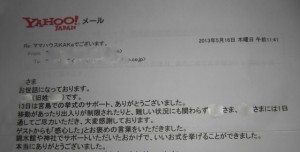 YAHOO! メール
JAPAN
Re:ママハウスKAKOでございます。
2013年5月16日 木曜日 午前11:41
さま
お世話になっております。
(旧姓 )です。
13日は宮島での挙式のサポート、ありがとうございました。
移動があったり出入りが制限されたりと、難しい状況にも関わらず さま、 さまには1日
通してご尽力いただき、大変感謝しております。
ゲストからも「感心した」とお褒めの言葉をいただきました。
錦水館や神社でサポートいただいたおかげで、いいお式を挙げることができました。
本当にありがとうございました。